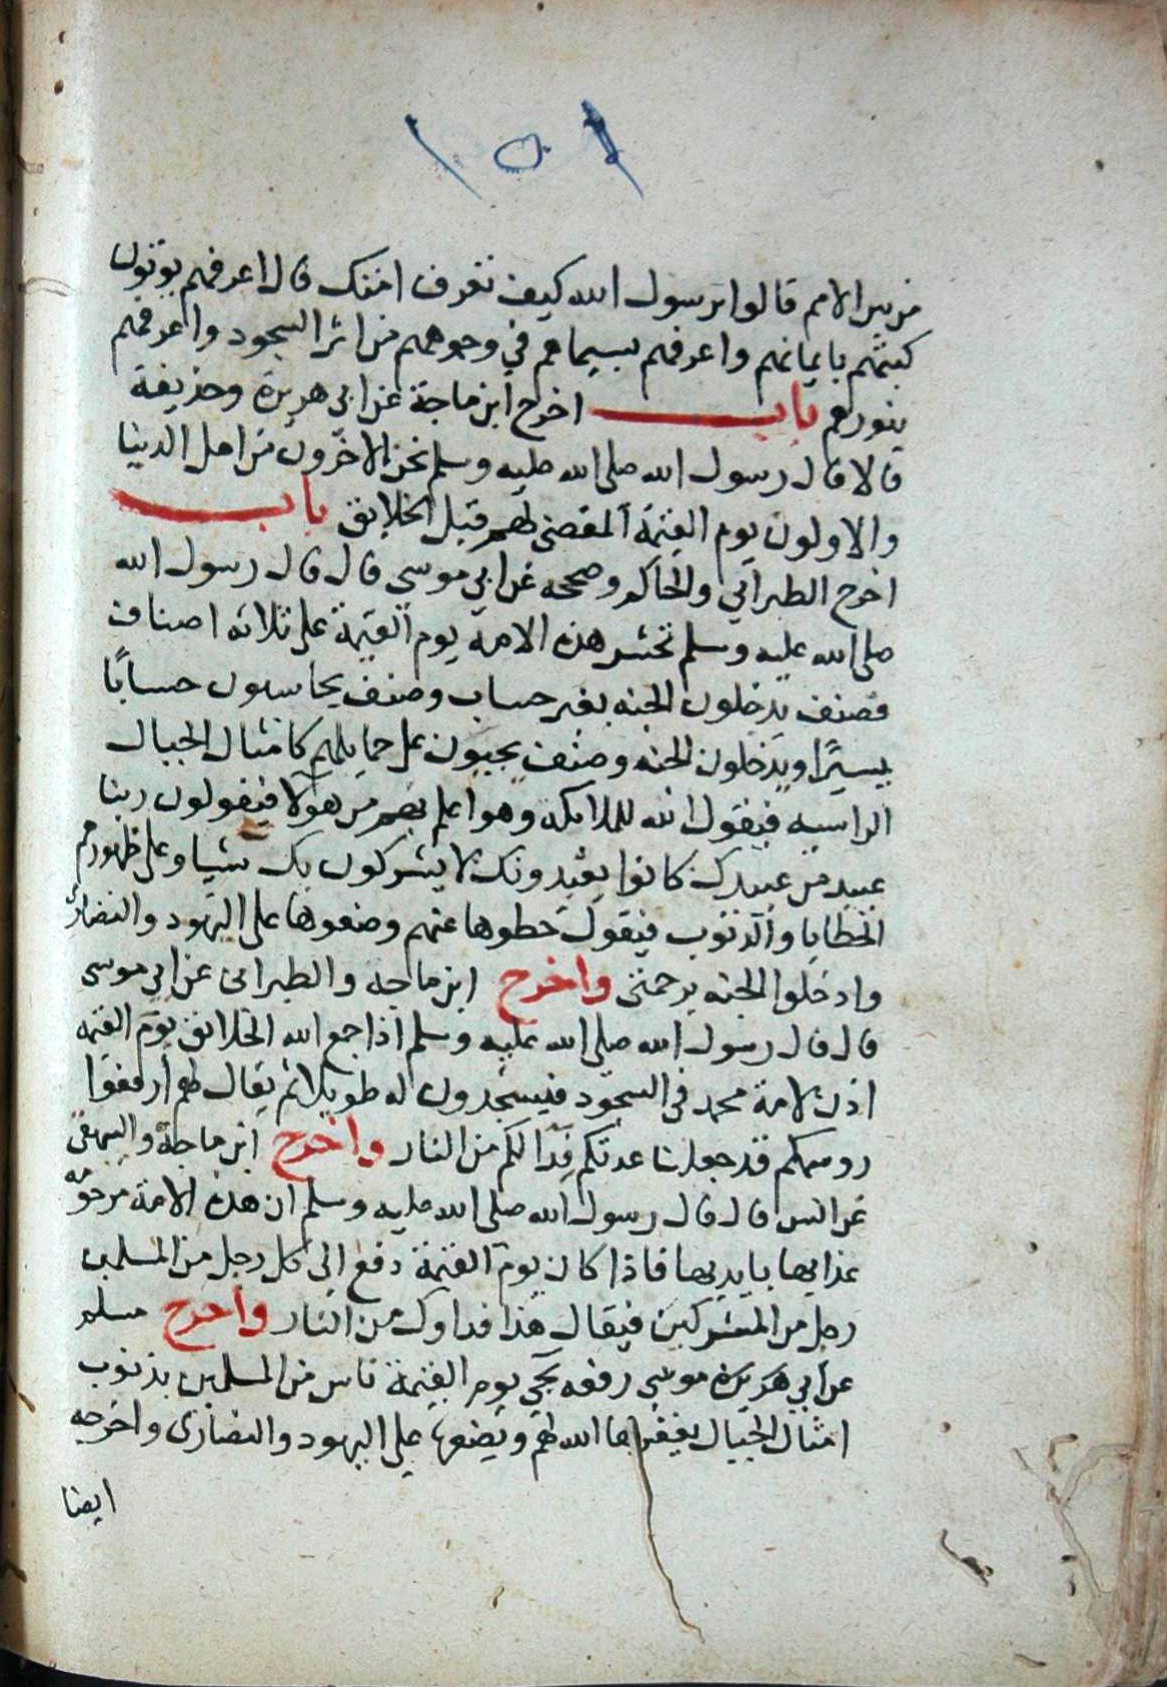 ١٥١
من بين الامم قالوا يرسول الله كيف تعرف امتك قال اعرفهم يوتون
كتبهم بايمانهم واعرفهم بسيماهم في وجوههم من اثر السجود واعرفهم
بنورهم باب اخرج ابن ماجة عن ابي هريرة وحذيفة
قالا قال رسول الله صلى الله عليه وسلم نحن الاخرون من اهل الدينا
والاولون يوم القيمة المقضي لهم قبل الخلايق باب
اخرج الطبراني والحاكم وصححه عن ابي موسى قال قال رسول الله
صلى الله عليه وسلم تحشر هذه الامة يوم القيمة على ثلاثه اصناف
فصنف يدخلون الجنه بغير حساب وصنف يحاسبون حسابًا
يسيرًا ويدخلون الجنه وصنف يجيون على حمايلهم كامثال الجبال
الراسيه فيقول الله للملايكه وهو اعلم بهم من هولا فيقولون ربنا
عبيد من عبيدك كانوا يعبدونك لا يشركون بك شيا وعلى ظهورهم
الخطايا والذنوب فيقول حطوها عنهم وضعوها على اليهود والنصارى
وادخلوا الجنه برحمتى واخرج ابن ماجه والطبرانى عن ابي موسى
قال قال رسول الله صلى الله عليه وسلم اذا جمع الله الخلايق يوم القيمه
اذن لامة محمد في السجود فيسجدون له طويلا ثم يقال لهم ارفعوا
روسكم قد جعلنا عدتكم فدا لكم من النار واخرج ابن ماجة والبيهقى
عن انس قال قال رسول الله صلى الله عليه وسلم ان هذه الامة مرحومه
عذابها بايديها فاذا كان يوم القيمة دفع الى كل رجل من المسلمين
رجل من المشركين فيقال هذا فداوك من النار واخرج مسلم
عن ابي هريرة موسى رفعه يجي يوم القيمة ناس من المسلمين بذنوب
امثال الجبال يغفرها الله لهم ويضعها على اليهود والنصارى واخرجه
ايضا